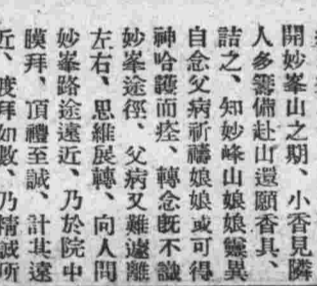 開妙峯山之期、小香見隣
人多籌備赴山還願香具、
詰之、知妙峰山娘娘靈異
自念父病祈禱娘娘或可得
神哈護而痊、轉念既不識
妙峯途徑、父病又難遽離
左右、思維展轉、向人問
妙峯路途遠近、乃於院中
膜拜、頂禮至誠、計其遠
近、度拜如數、乃精誠所